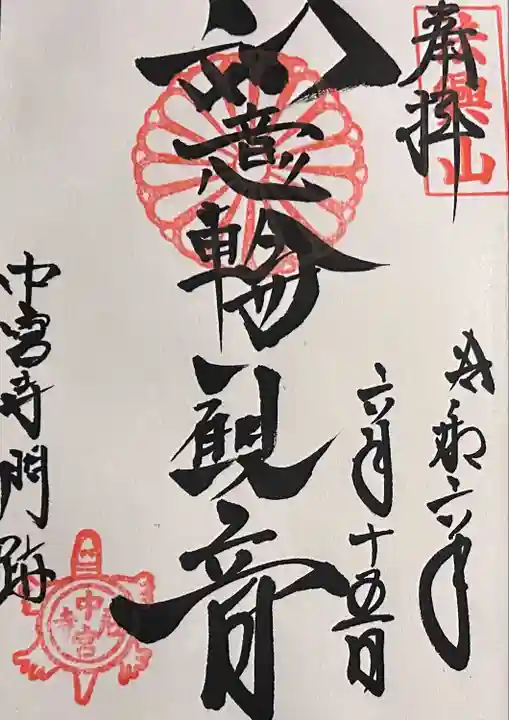 奉拝
法興山
令和六年
六月十五日
如意輪観音
中宮寺門跡
中宮寺